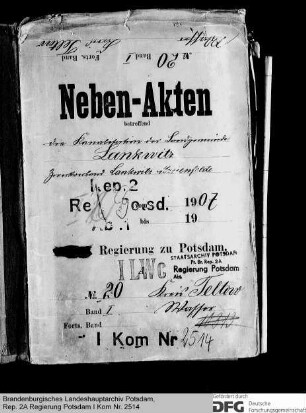 № 20 Band I
Forts. Band
Kreis Teltow
Wasser
Neben-Akten
betreffend
die Kanalisation der Landgemeinde
Lankwitz
Rep. 2
1907
bis 19
Regierung zu Potsdam.
STAATSARCHIV POTSDAM
Pr. Br. Rep. 2A
Regierung Potsdam
Abt.
I LWG
№ 20
Kreis Teltow
Band I
Wasser
Forts. Band
I Kom Nr. 2514
Brandenburgisches Landeshauptarchiv Potsdam,
Rep. 2A Regierung Potsdam I Kom Nr. 2514
Gefördert durch
DFG Deutsche
Forschungsgemeinschaft